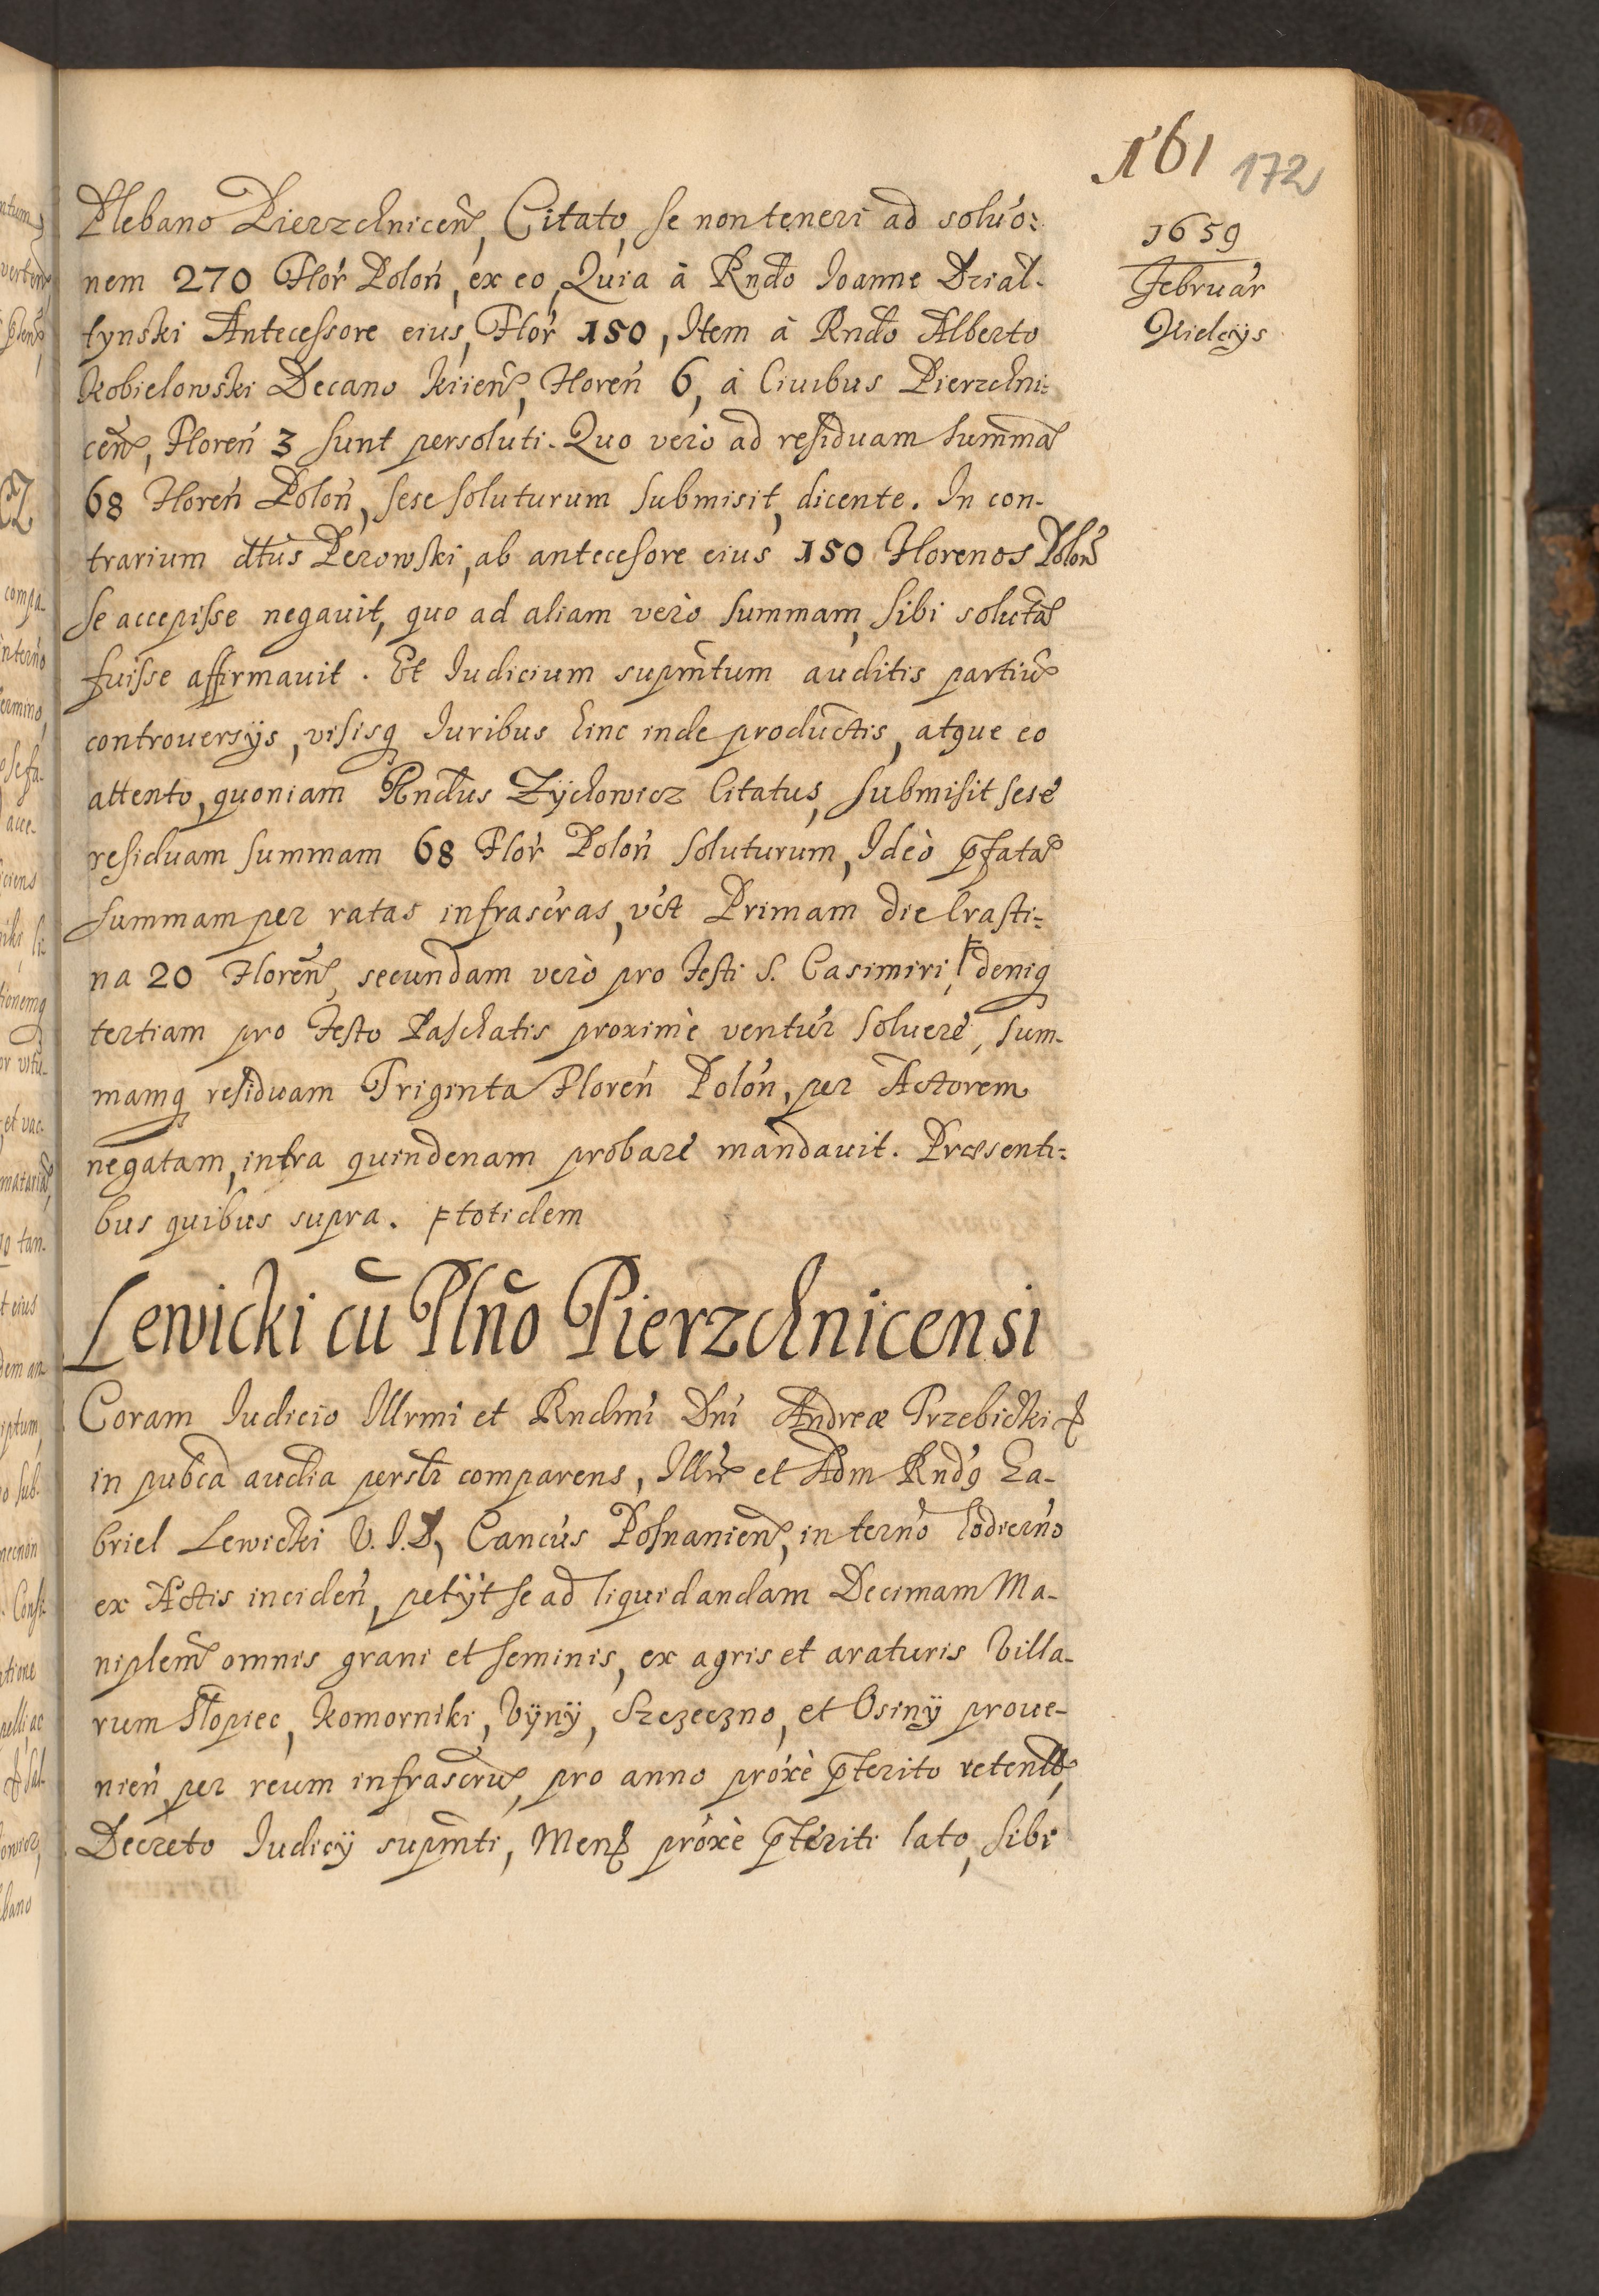 161 172
1659
Februar̃
Kielcijs
Plebano Pierzchnicen̄, Citato, se non teneri ad soluo:
nem 270 Flor̃ Polon̄, ex eo, Quia à Rndo Ioanne Dzial-
tynski Antecessore eius, Flor̃ 150, Item à Rndo Alberto
Kobielowski Decano Kiien̄, Floren̄ 6, à Ciuibus Pierzchni:
cen̄, Floren̄ 3 sunt persoluti. Quo verò ad residuam summā
68 Floren̄ Polon̄, sese soluturum submisit, dicente. In con-
trarium dtus Perowski, ab antecesore eius 150 Florenos Polon̄
se accepisse negauit, quo ad aliam verò summam, sibi solutā
fuisse affirmauit. Et Iudicium supm̄tum auditis partiū
controuersijs, visisq Iuribus hinc inde productis, atque eo
attento, quoniam Rndus Zÿchowicz Citatus, submisit sese
residuam summam 68 Flor̃ Polon̄ soluturum, Ideò p̄fatā
summam per ratas infrascras, vct Primam die Crasti:
na 20 Floren̄, secundam verò pro Festi S. Casimiri, ꜔ deniq
tertiam pro Festo Paschatis proximè ventur̃ soluere, sum-
mamq residuam Triginta Floren̄ Polon̄, per Actorem
negatam, intra quindenam probare mandauit. Præsenti:
bus quibus supra. ꜔ totidem
Lewicki cū Plño Pierzchnicensi
Coram Iudicio Illrmi et Rndmi Dni Andreæ Trzebicki &
in pubca audia persolr comparens, Illris et Adm Rndg Ga-
briel Lewicki V. I. D, Cancus Posnanien̄, in terno hodierno
ex Actis inciden̄, petÿt se ad liquidandam Decimam Ma-
niplem̄ omnis grani et seminis, ex agris et araturis Villa-
rum Słopiec, Komorniki, Vÿnÿ, Szczeczno, et Osinÿ proue-
nien̄ per reum infrascrū, pro anno proxè p̄terito retentā,
Decreto Iudicÿ supm̄ti, Mens̄ proxè p̄teriti lato, sibi